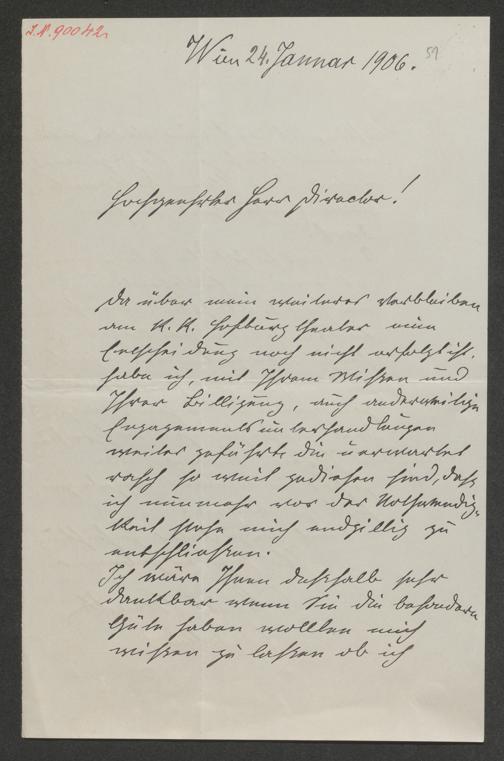 I.N. 90042
51
Wien 24. Januar 1906.
Hochgeehrter Herr Director!
Da über mein weiteres Verbleiben
am K. K. Hofburgtheater eine
Entscheidung noch nicht erfolgt ist,
habe ich, mit Ihrem Wissen und
Ihrer Billigung, auch anderweitige
Engagementsunterhandlungen
weiter geführt die unerwartet
rasch so weit gediehen sind, daß
ich nunmehr vor der Nothwendig-
keit stehe mich endgiltig zu
entschließen.
Ich wäre Ihnen deßhalb sehr
dankbar wenn Sie die besondere
Güte haben wollten mich
wißen zu laßen ob ich